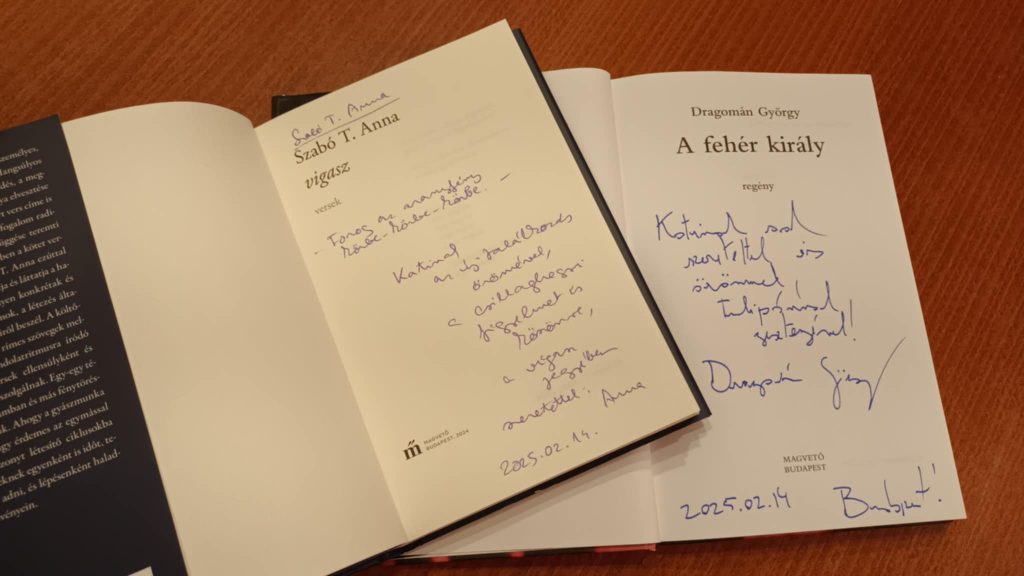 személyes,
hangsúlyos
dés, a meg-
ya elvesztése
t vers címe is
fogalom radi-
iggése teremti
ben a kötet ver-
T. Anna ezúttal
ja és láttatja a ha-
yen konkrétak és
mok, a létezés álta-
ról beszél. A költő-
rímes szövegek mel-
ndolatritmusra íródó
ersek ellensúlyként és
szolgálnak. Egy-egy té-
mban és más fénytörés-
k. Ahogy a gyászmunka
gy érdemes az egymással
zonyt létesítő ciklusokba
eknek egyenként is időt, te-
adni, és lépésenként halad-
vényein.
Szabó T. Anna
Szabó T. Anna
vigasz
versek
Forog az aranyfény
– körbe-körbe-körbe. –
Katinak
az új találkozás
örömével,
a csillaghegyi
figyelmet is
köszönve,
a vigasz
jegyében
szeretettel: Anna
2025.02.14.
MAGVETŐ
BUDAPEST, 2024
Dragomán György
A fehér király
regény
Katinak sok
szeretettel és
örömmel
tulipánnal
Dragomán György
MAGVETŐ
BUDAPEST
2025.02.14 Budapest!